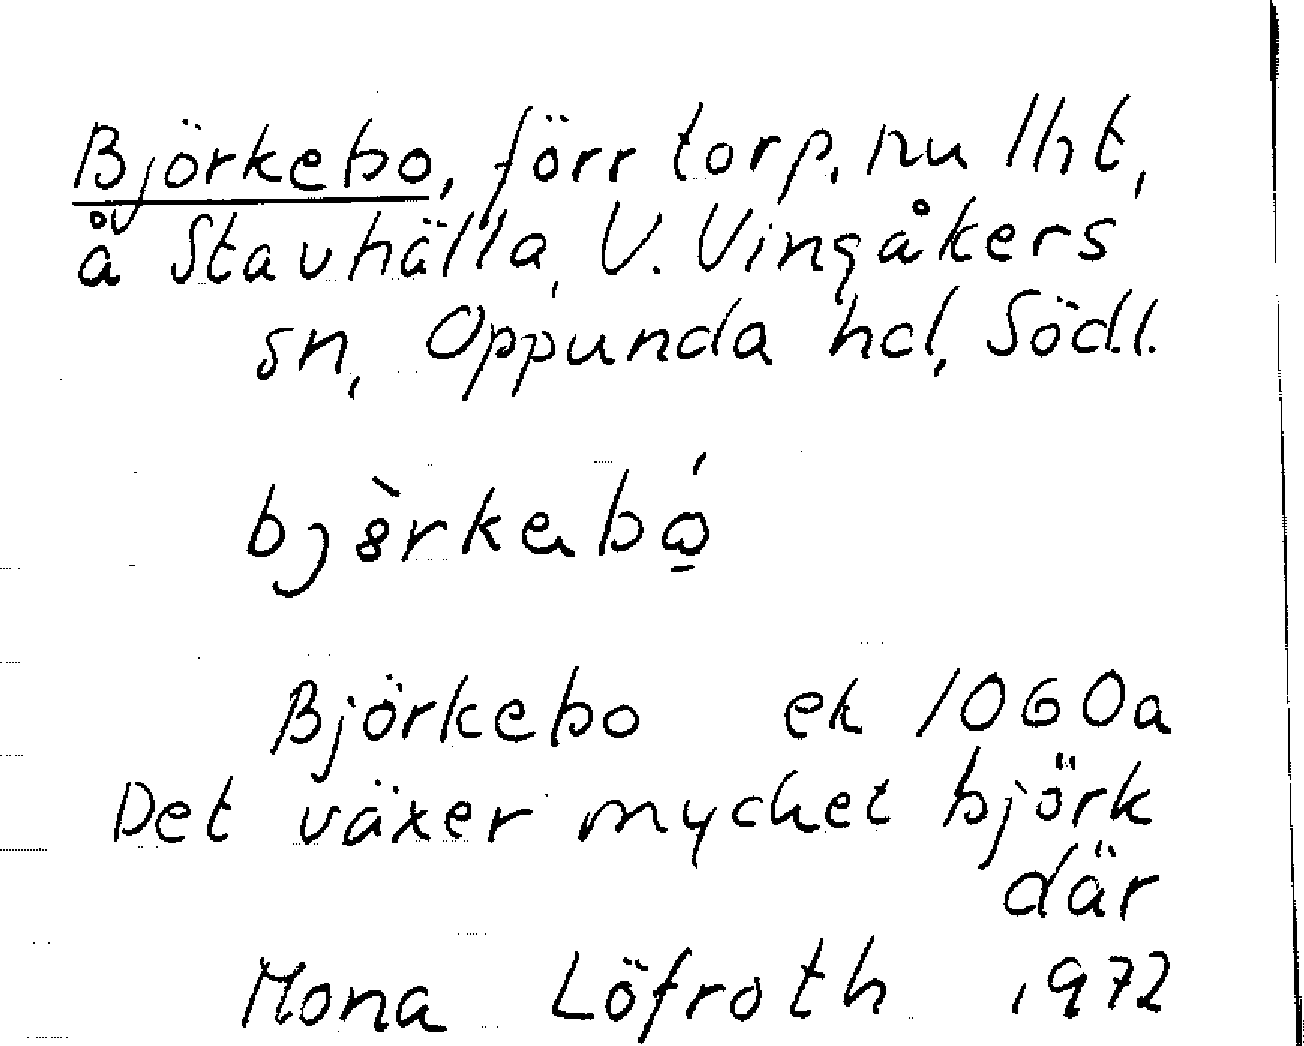 Björkebo, förr torp, nu lht,
å Stavhälla, V. Vingåkers
sn, Oppunda hd, Södl.
Björkebo ek 1060a
Det växer mycket björk
där
Mona Löfroth 1972